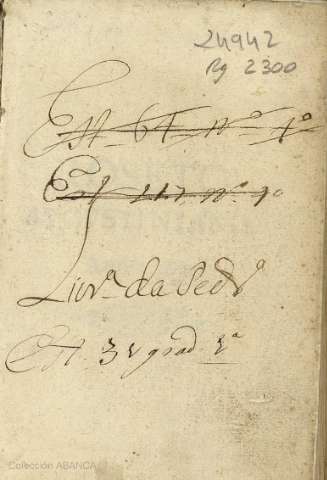 24942
Rg 2300
Est. 64 nº 1º
Est. 217 nº 9º
Livrª da Pedrª
Est. 31 grad. 1ª
Colección ABANCA